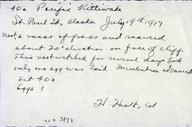 40a Pacific Kittiwake
St. Paul Id, Alaska July 19, 1917
Nest a mass of grass and seaweed
about 20' elevation on face of cliff.
This nest watched for several days but
only one egg was laid. Incubation advanced
Set 40a
Eggs 1
Col